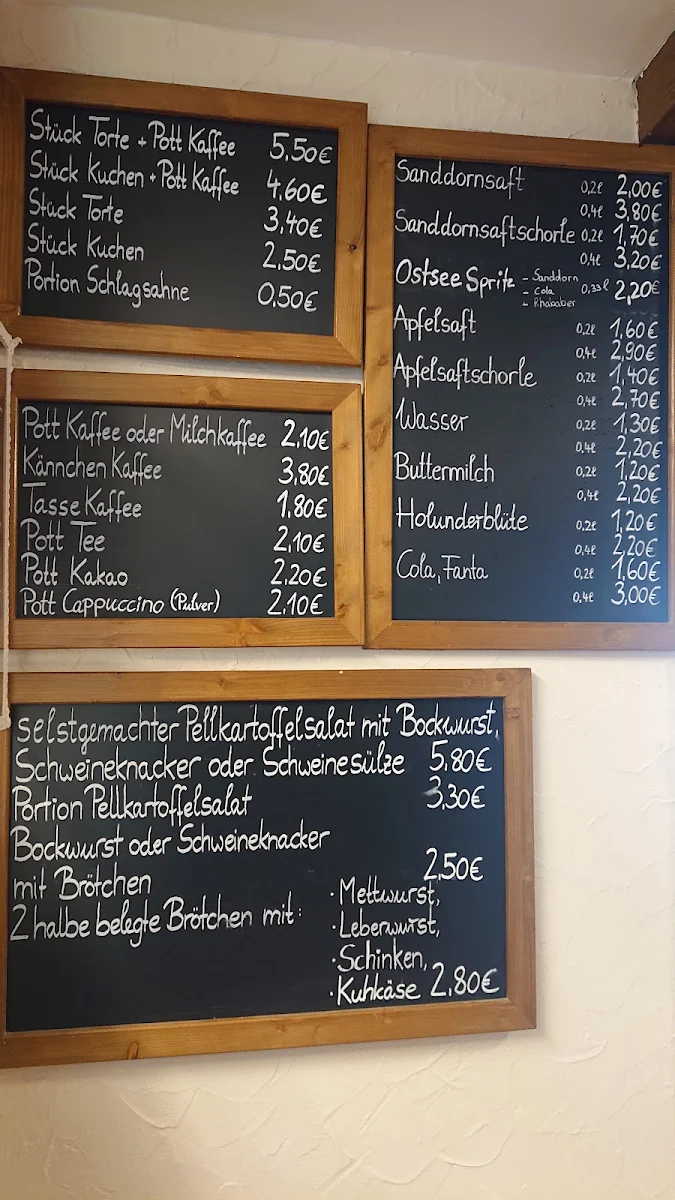 Stück Torte + Pott Kaffee 5,50€
Stück Kuchen + Pott Kaffee 4,60€
Stück Torte 3,40€
Stück Kuchen 2,50€
Portion Schlagsahne 0,50€
Pott Kaffee oder Milchkaffee 2,10€
Kännchen Kaffee 3,80€
Tasse Kaffee 1,80€
Pott Tee 2,10€
Pott Kakao 2,20€
Pott Cappuccino (Pulver) 2,10€
Sanddornsaft 0,2l 2,00€
0,4l 3,80€
Sanddornsaftschorle 0,2l 1,70€
0,4l 3,20€
Ostsee Sprite - Sanddorn
- Cola 0,33l 2,20€
- Rhababer
Apfelsaft 0,2l 1,60€
0,4l 2,90€
Apfelsaftschorle 0,2l 1,40€
0,4l 2,70€
Wasser 0,2l 1,30€
0,4l 2,20€
Buttermilch 0,2l 1,20€
0,4l 2,20€
Holunderblüte 0,2l 1,20€
0,4l 2,20€
Cola, Fanta 0,2l 1,60€
0,4l 3,00€
selstgemachter Pellkartoffelsalat mit Bockwurst,
Schweineknacker oder Schweinesülze 5.80€
Portion Pellkartoffelsalat 3,30€
Bockwurst oder Schweineknacker
mit Brötchen 2,50€
2 halbe belegte Brötchen mit: · Mettwurst,
· Leberwurst,
· Schinken,
· Kuhkäse 2,80€